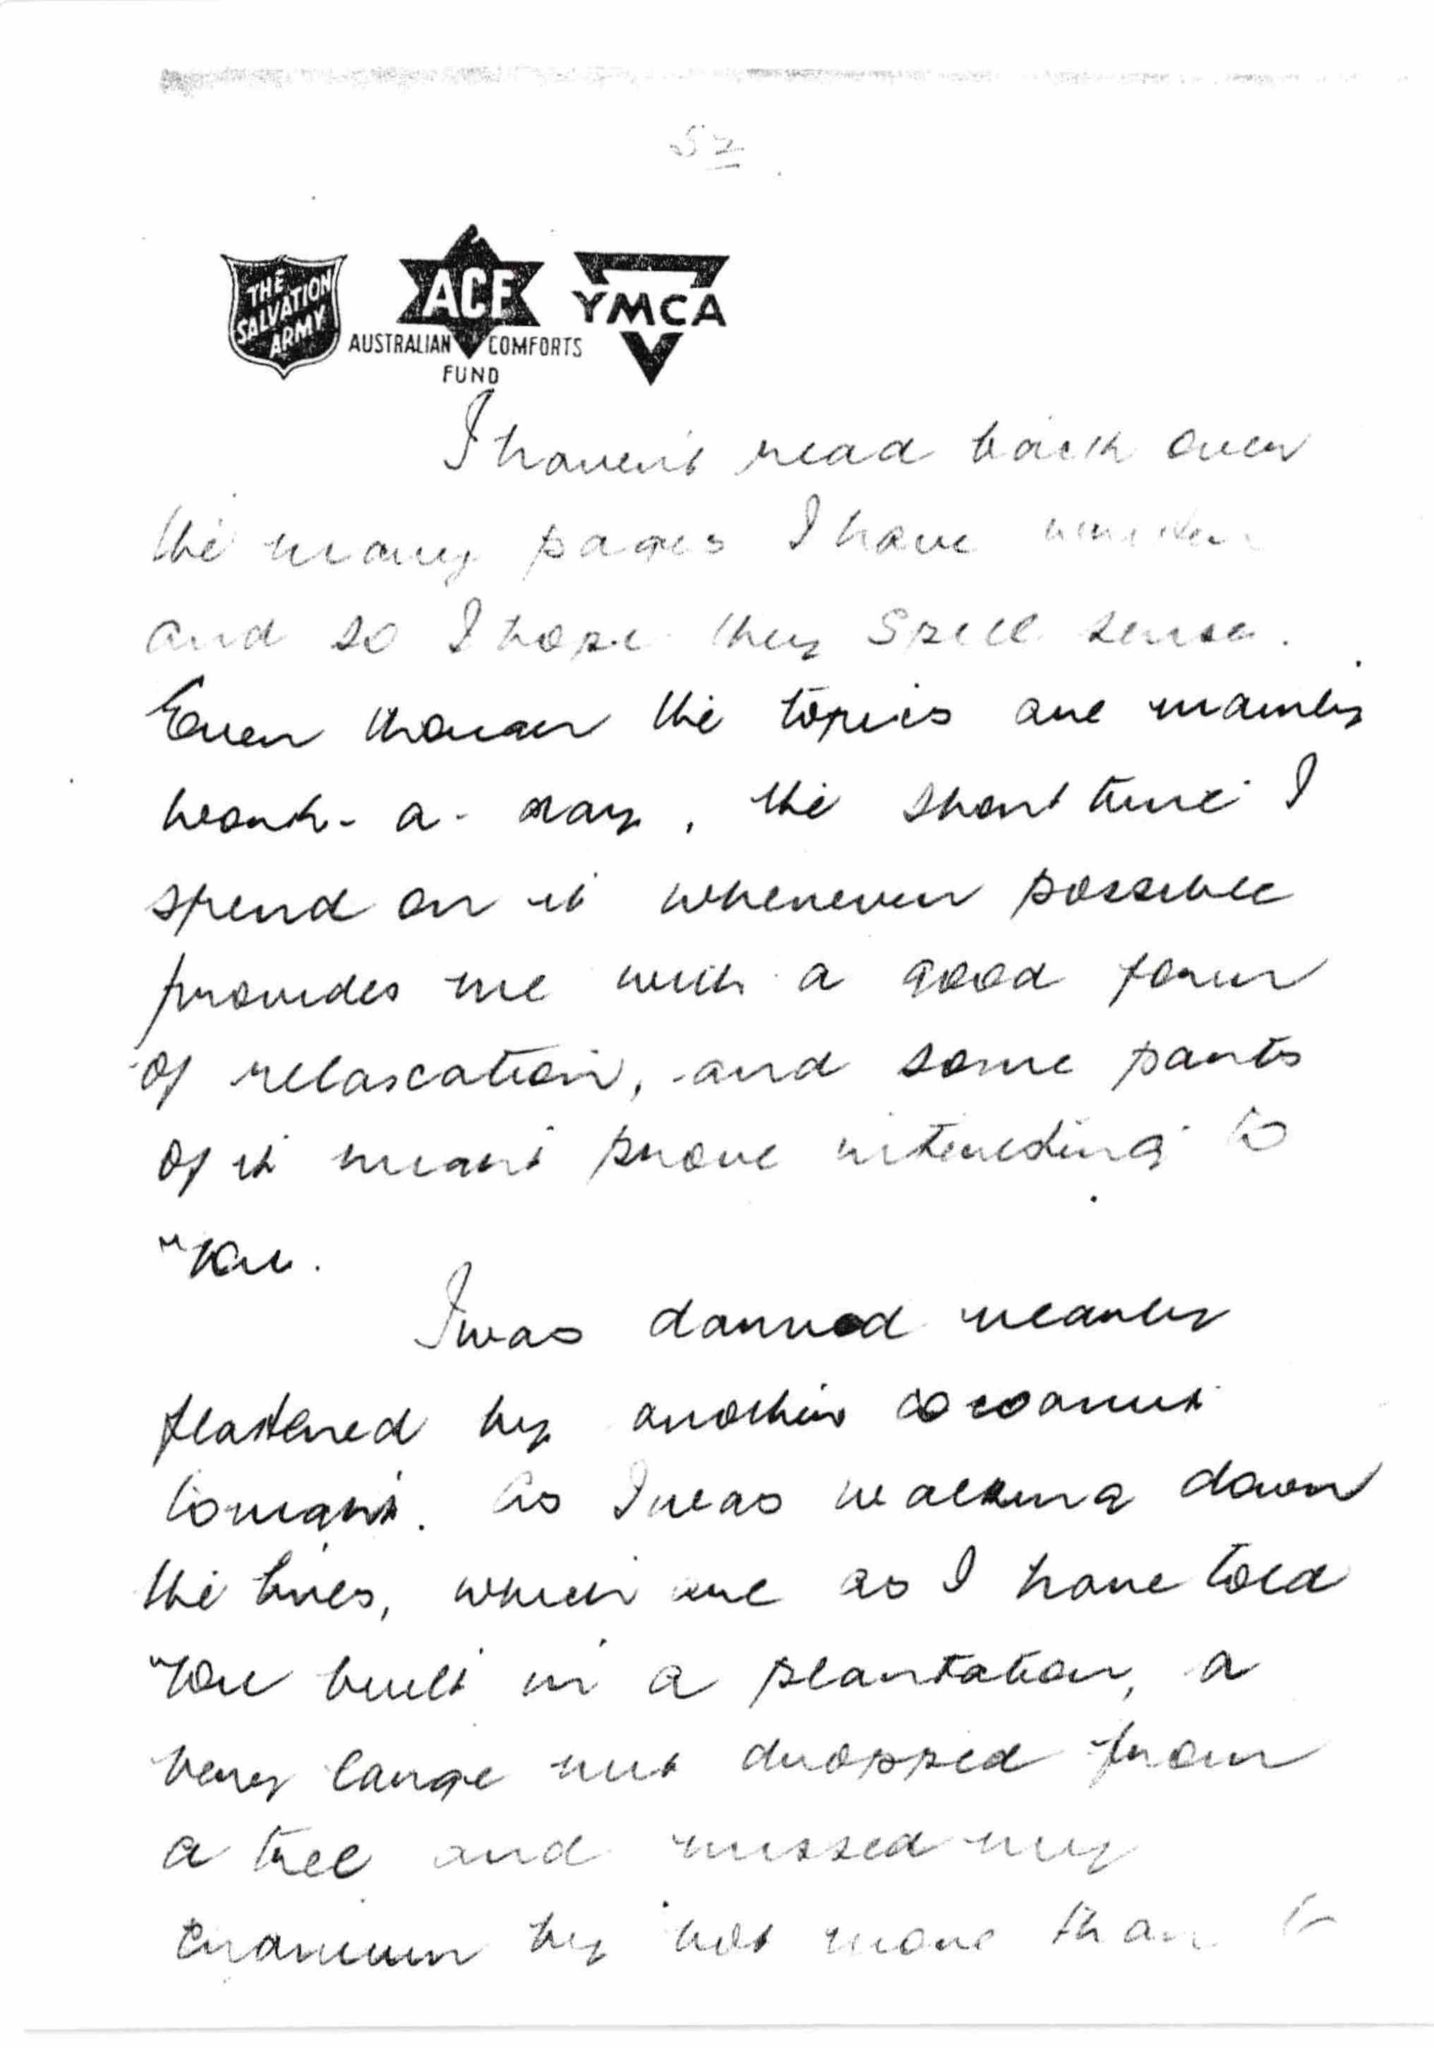 57
THE SALVATION ARMY
ACF
AUSTRALIAN COMFORTS FUND
YMCA
I haven't read back over
the many pages I have written
and so I hope they spell sense.
Even though the topics are mainly
work-a-day, the short time I
spend on it whenever possible
provides me with a good form
of relaxation, and some parts
of it might prove interesting to
you.
I was damned nearly
flattened by another cocoanut
tonight. As I was walking down
the lines, which are as I have told
you built in a plantation, a
very large nut dropped from
a tree and missed my
cranium by not more than